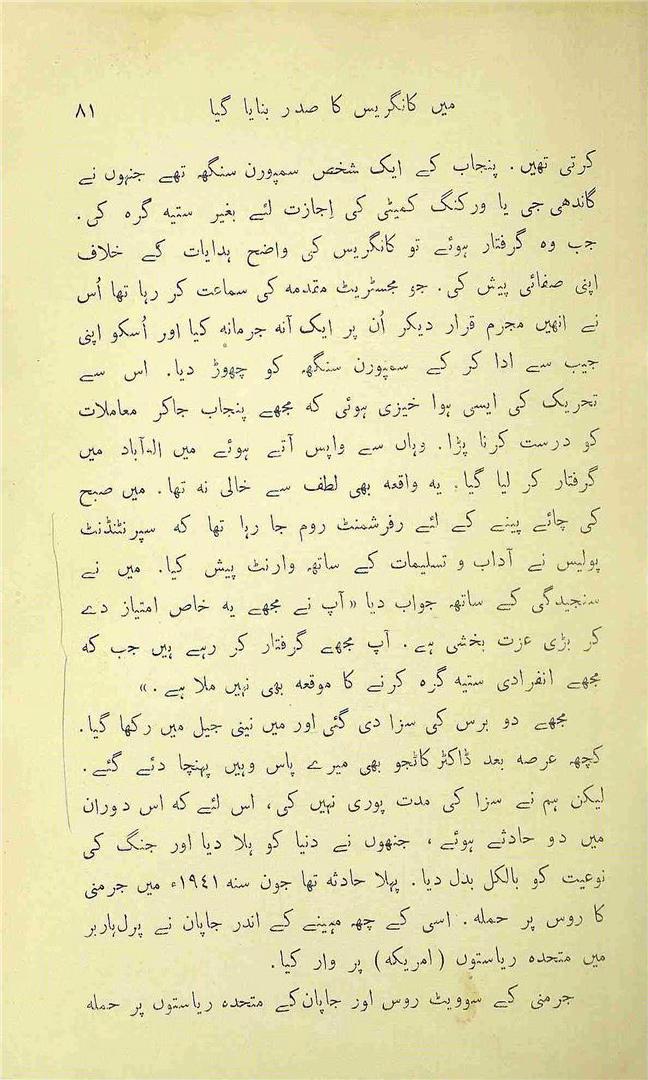 میں کانگریس کا صدر بنایا گیا ۸۱
کرتی تھیں۔ پنجاب کے ایک شخص سمپورن سنگھ تھے جنہوں نے
گاندھی جی یا ورکنگ کمیٹی کی اِجازت لئے بغیر ستیہ گرہ کی۔
جب وہ گرفتار ہوئے تو کانگریس کی واضح ہدایات کے خلاف
اپنی صفائی پیش کی۔ جو مجسٹریٹ مقدمہ کی سماعت کر رہا تھا اُس
نے انھیں مجرم قرار دیکر اُن پر ایک آنہ جرمانہ کیا اور اُسکو اپنی
جیب سے ادا کر کے سمپورن سنگھ کو چھوڑ دیا۔ اس سے
تحریک کی ایسی ہوا خیزی ہوئی کہ مجھے پنجاب جاکر معاملات
کو درست کرنا پڑا۔ وہاں سے واپس آتے ہوئے میں الہ آباد میں
گرفتار کر لیا گیا۔ یہ واقعہ بھی لطف سے خالی نہ تھا۔ میں صبح
کی چائے پینے کے لئے رفرشمنٹ روم جا رہا تھا کہ سپرنٹنڈنٹ
پولیس نے آداب و تسلیمات کے ساتھ وارنٹ پیش کیا۔ میں نے
سنجیدگی کے ساتھ جواب دیا «آپ نے مجھے یہ خاص امتیاز دے
کر بڑی عزت بخشی ہے۔ آپ مجھے گرفتار کر رہے ہیں جب کہ
مجھے انفرادی ستیہ گرہ کرنے کا موقعہ بھی نہیں ملا ہے۔»
مجھے دو برس کی سزا دی گئی اور میں نینی جیل میں رکھا گیا۔
کچھ عرصہ بعد ڈاکٹر کاٹجو بھی میرے پاس وہیں پہنچا دئے گئے۔
لیکن ہم نے سزا کی مدت پوری نہیں کی، اس لئے کہ اس دوران
میں دو حادثے ہوئے، جنھوں نے دنیا کو ہلا دیا اور جنگ کی
نوعیت کو بالکل بدل دیا۔ پہلا حادثہ تھا جون سنہ ۱۹۴۱ء میں جرمنی
کا روس پر حملہ۔ اسی کے چھ مہینے کے اندر جاپان نے پرل ہاربر
میں متحدہ ریاستوں (امریکہ) پر وار کیا۔
جرمنی کے سوویٹ روس اور جاپان کے متحدہ ریاستوں پر حملہ